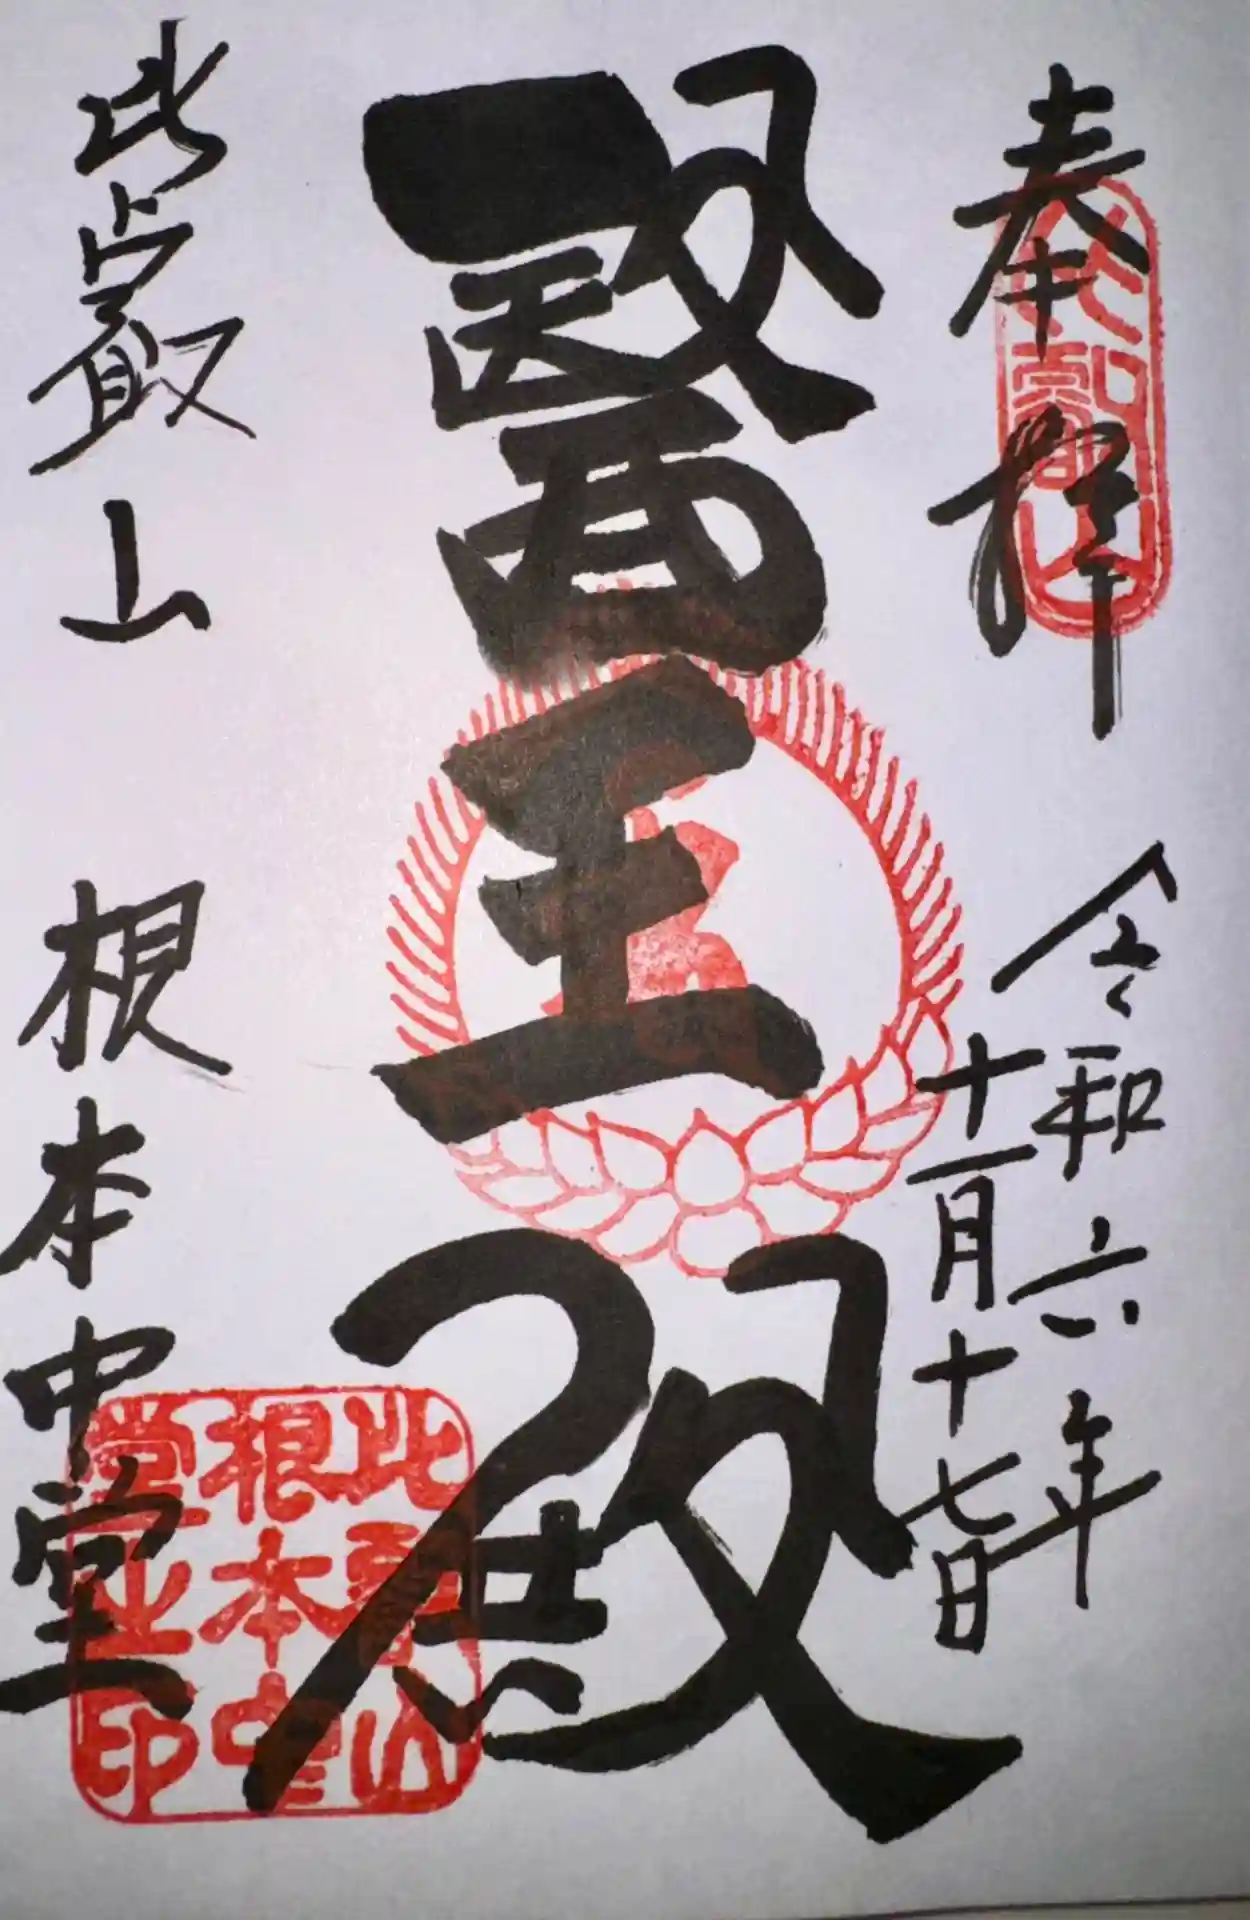 奉拝
令和六年
十一月十七日
醫王殿
比叡山 根本中堂
比叡山
根本中
堂之印